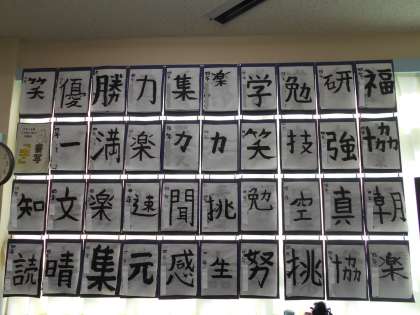 笑優勝力集楽学勉研福
一満楽力力笑技強協
知文楽速聞挑勉空真朝
読晴集元感生努挑協楽